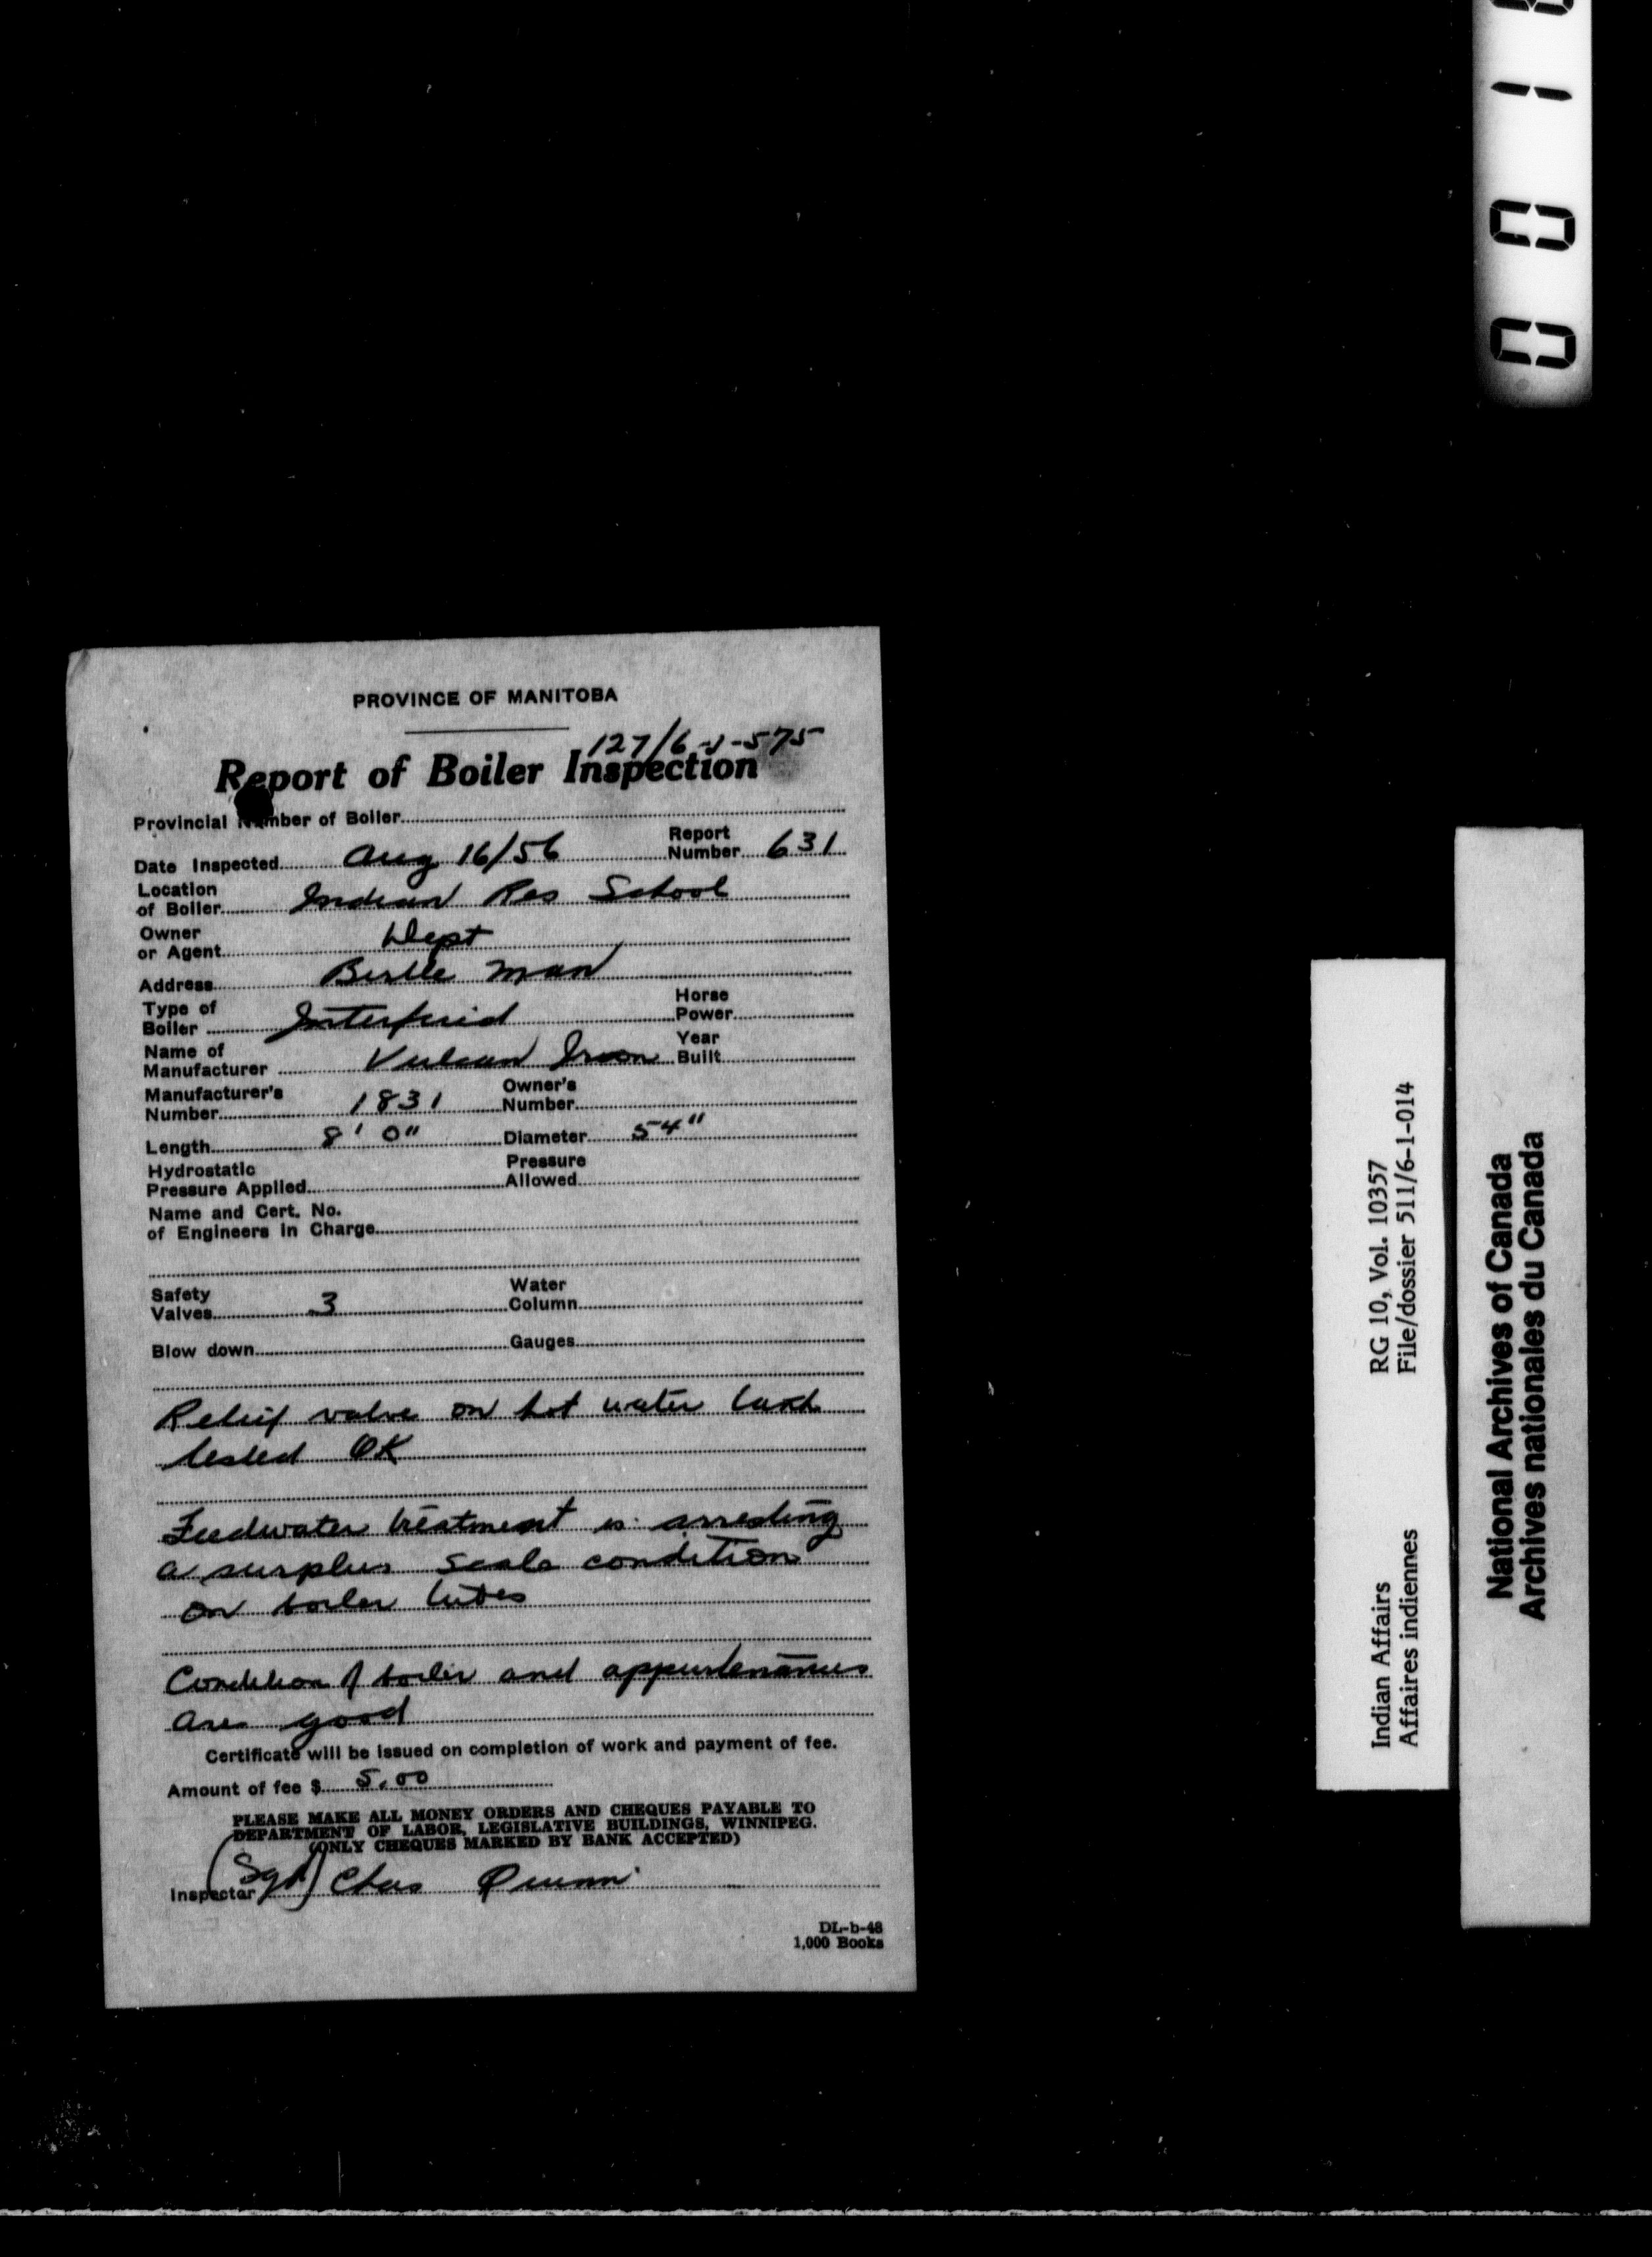 PROVINCE OF MANITOBA
127/6-1-575
Report of Boiler Inspection
Provincial Number of Boiler
Date Inspected Aug 16/56 Report Number 631
Location of Boiler Indian Res School
Owner or Agent Dept
Address Birtle Man
Type of Boiler Interfurid Horse Power
Name of Manufacturer Vulcan Iron Year Built
Manufacturer's Number 1831 Owner's Number
Length 8' 0" Diameter 54"
Hydrostatic Pressure Applied Pressure Allowed
Name and Cert. No. of Engineers in Charge
Safety Valves 3 Water Column
Blow down Gauges
Relief valve on hot water tank
tested OK
Feedwater treatment is arresting
a surplus scale condition
on boiler tubes
Condition of boiler and appurtenances
are good
Certificate will be issued on completion of work and payment of fee.
Amount of fee $ 5.00
PLEASE MAKE ALL MONEY ORDERS AND CHEQUES PAYABLE TO
DEPARTMENT OF LABOR, LEGISLATIVE BUILDINGS, WINNIPEG.
(ONLY CHEQUES MARKED BY BANK ACCEPTED)
Inspector (Sgd) Chas Quinn
DL-b-48
1,000 Books
Indian Affairs RG 10, Vol. 10357
Affaires indiennes File/dossier 511/6-1-014
National Archives of Canada
Archives nationales du Canada
001